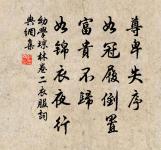 尊卑失序
如冠履倒置
富貴不歸
如錦衣夜行
幼學瓊林卷二衣服詞
典網集